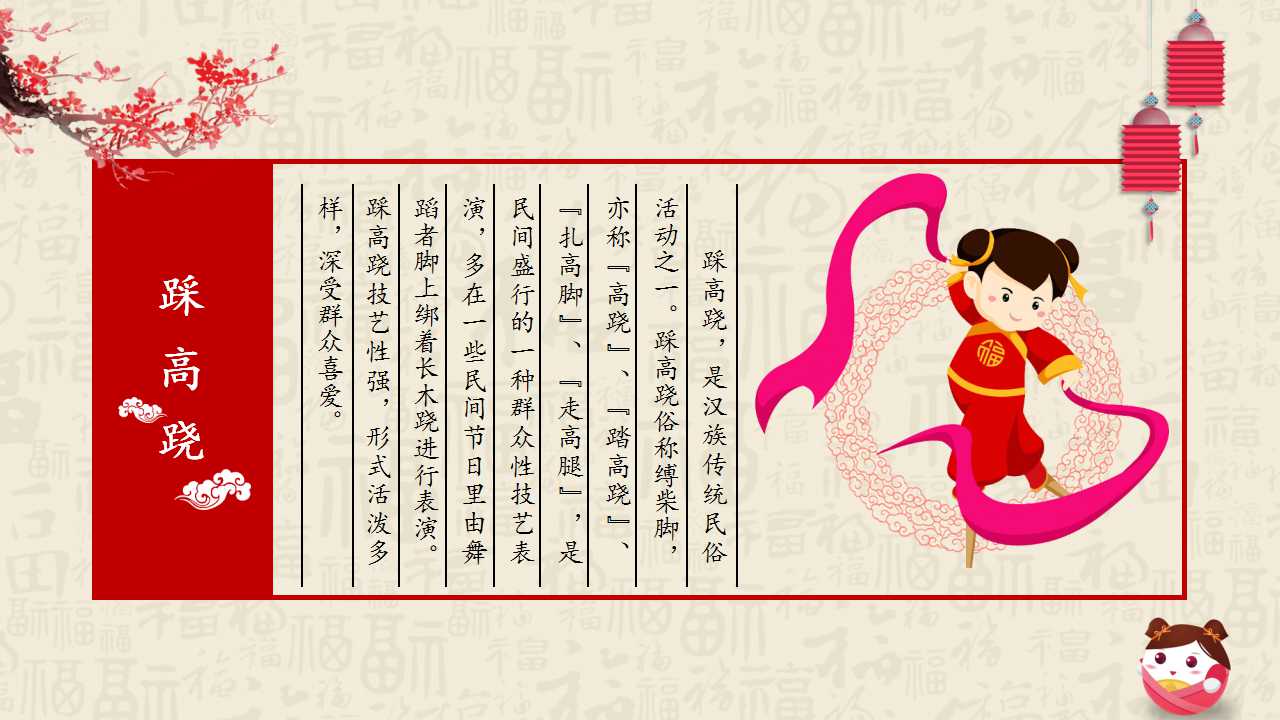 踩高跷
踩高跷，是汉族传统民俗
活动之一。踩高跷俗称缚柴脚，
亦称『高跷』、『踏高跷』、
『扎高脚』、『走高腿』，是
民间盛行的一种群众性技艺表
演，多在一些民间节日里由舞
蹈者脚上绑着长木跷进行表演。
踩高跷技艺性强，形式活泼多
样，深受群众喜爱。
福